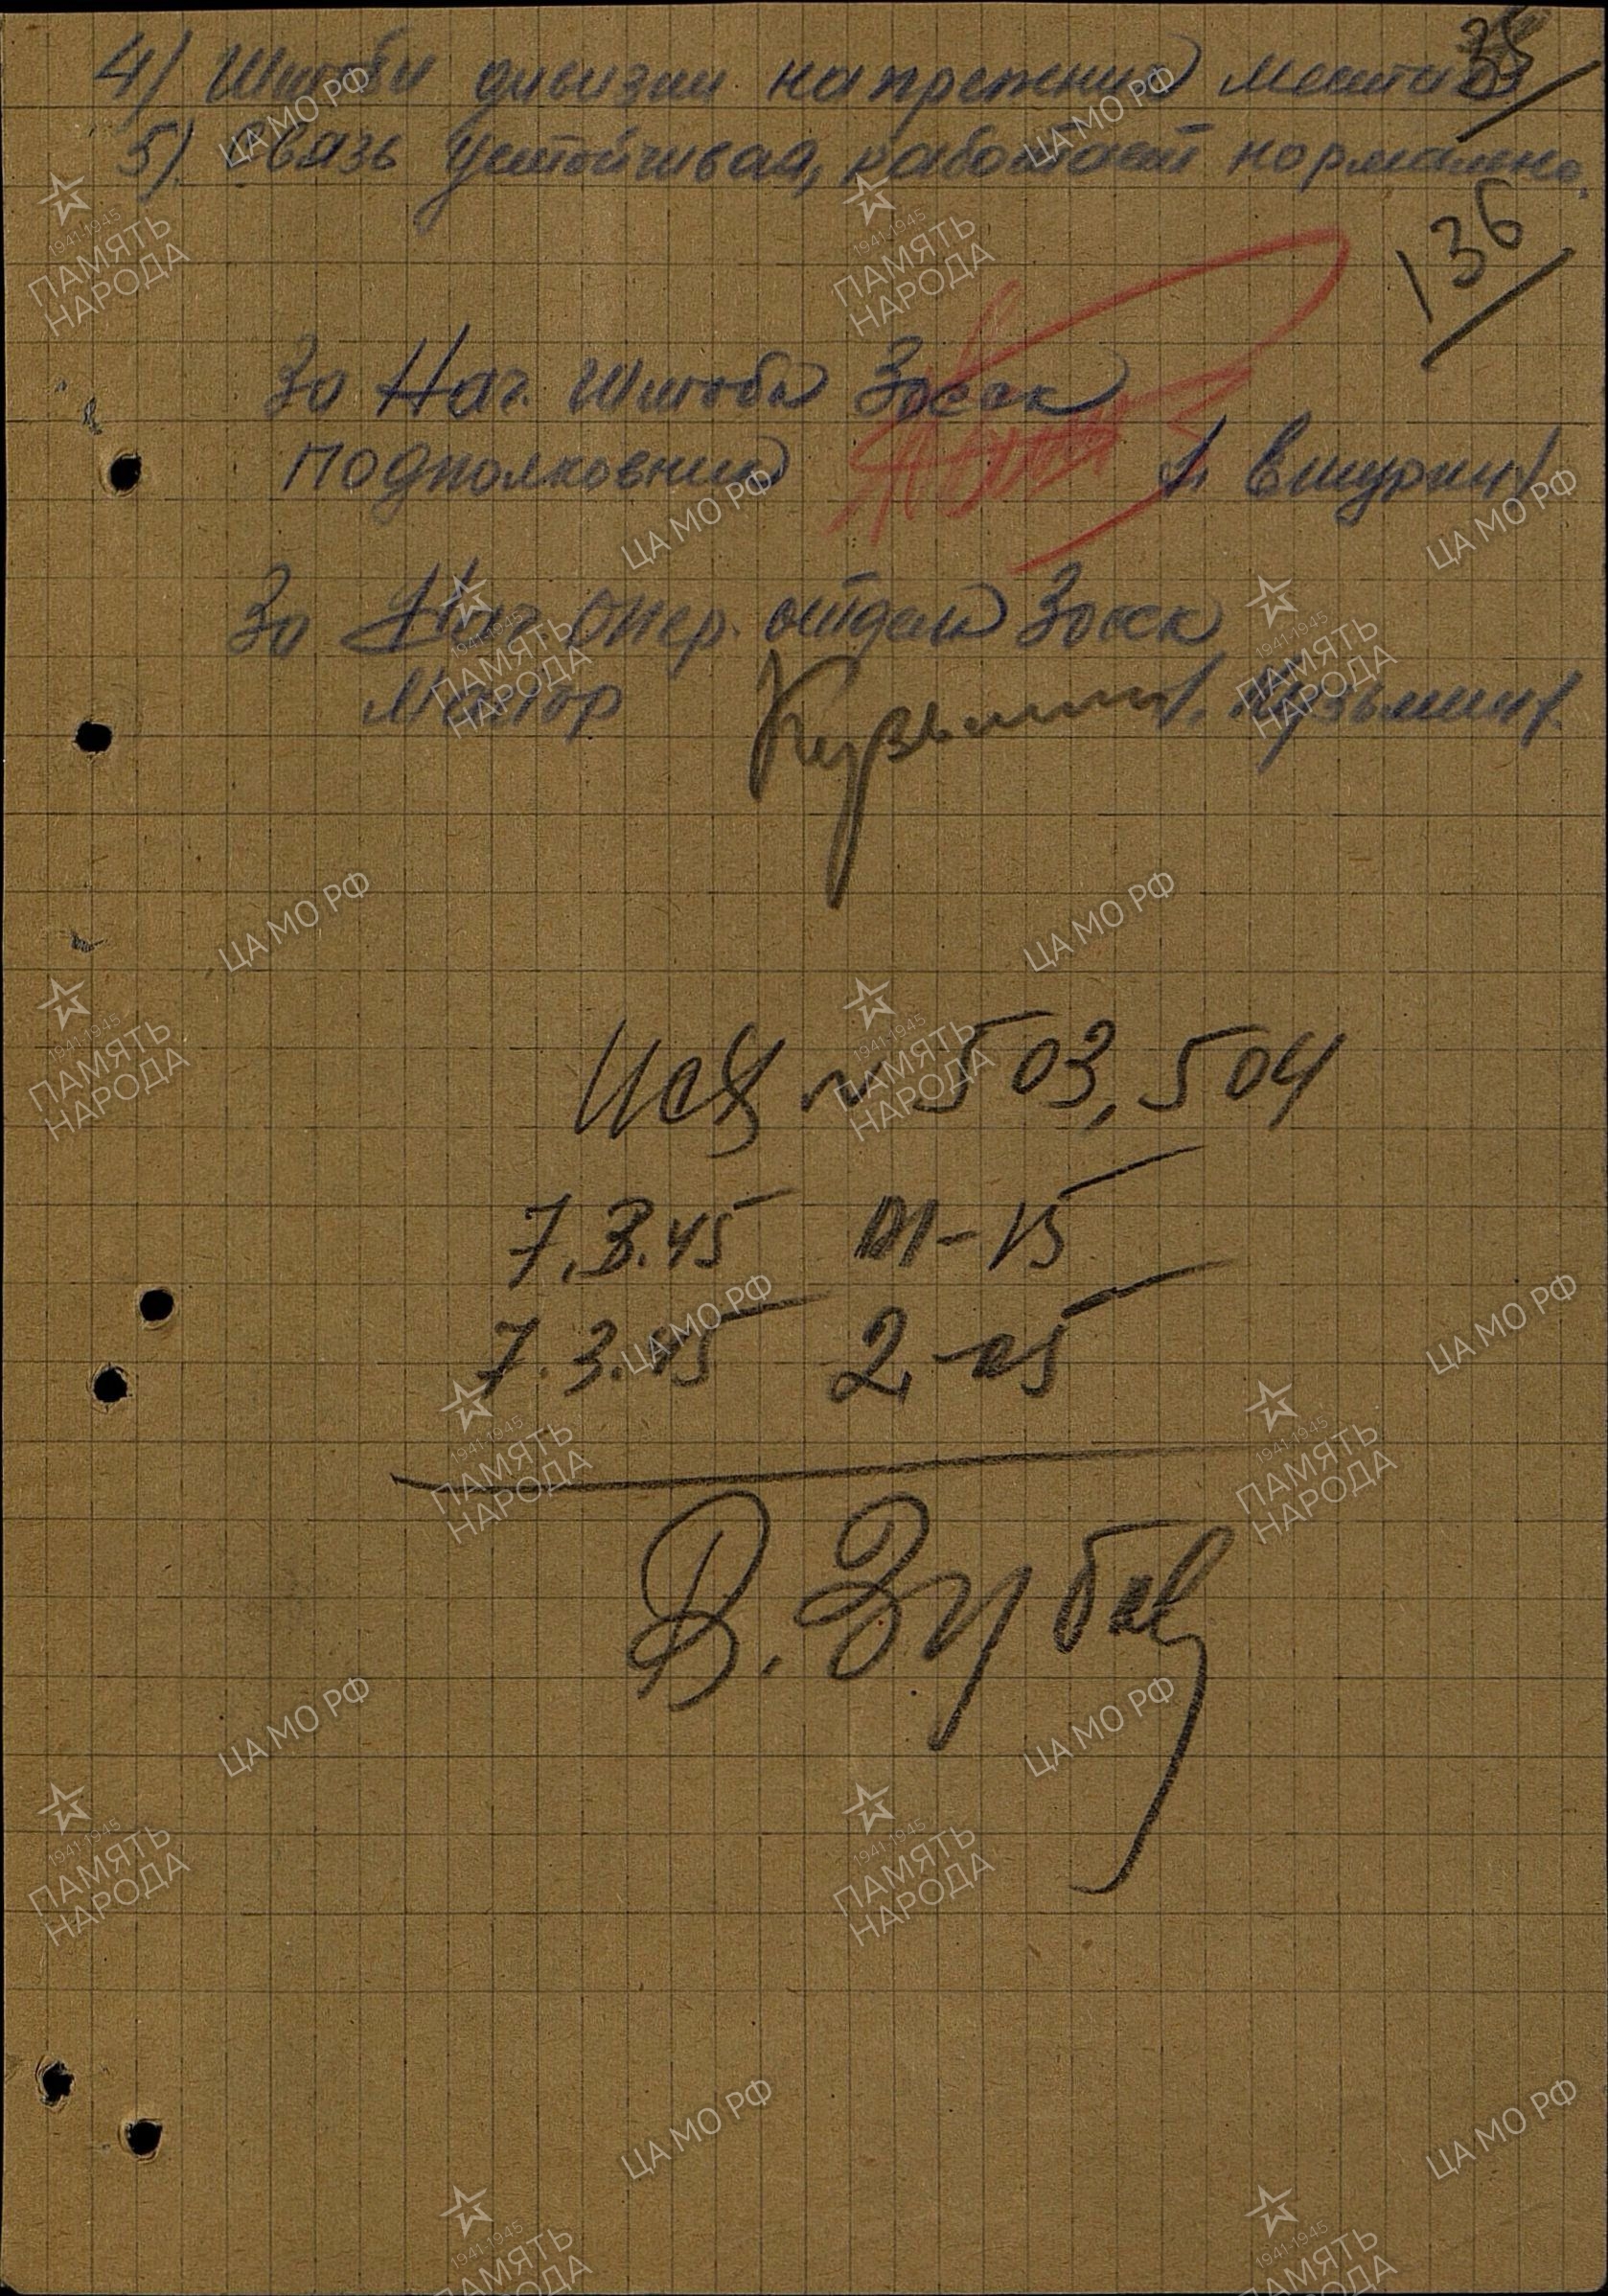 35
4) Штабы дивизии на прежних местах
5). Связь устойчивая, работает нормально.
136
За Нач. Штаба 30 ск
подполковник /. Вищуркин/
За Нач. Опер. отдела 30 ск
Майор Кузьмин /. Кузьмин/.
Исх № 503, 504
7.3.45 - 15
7.3.45 2-05
В. Зубов